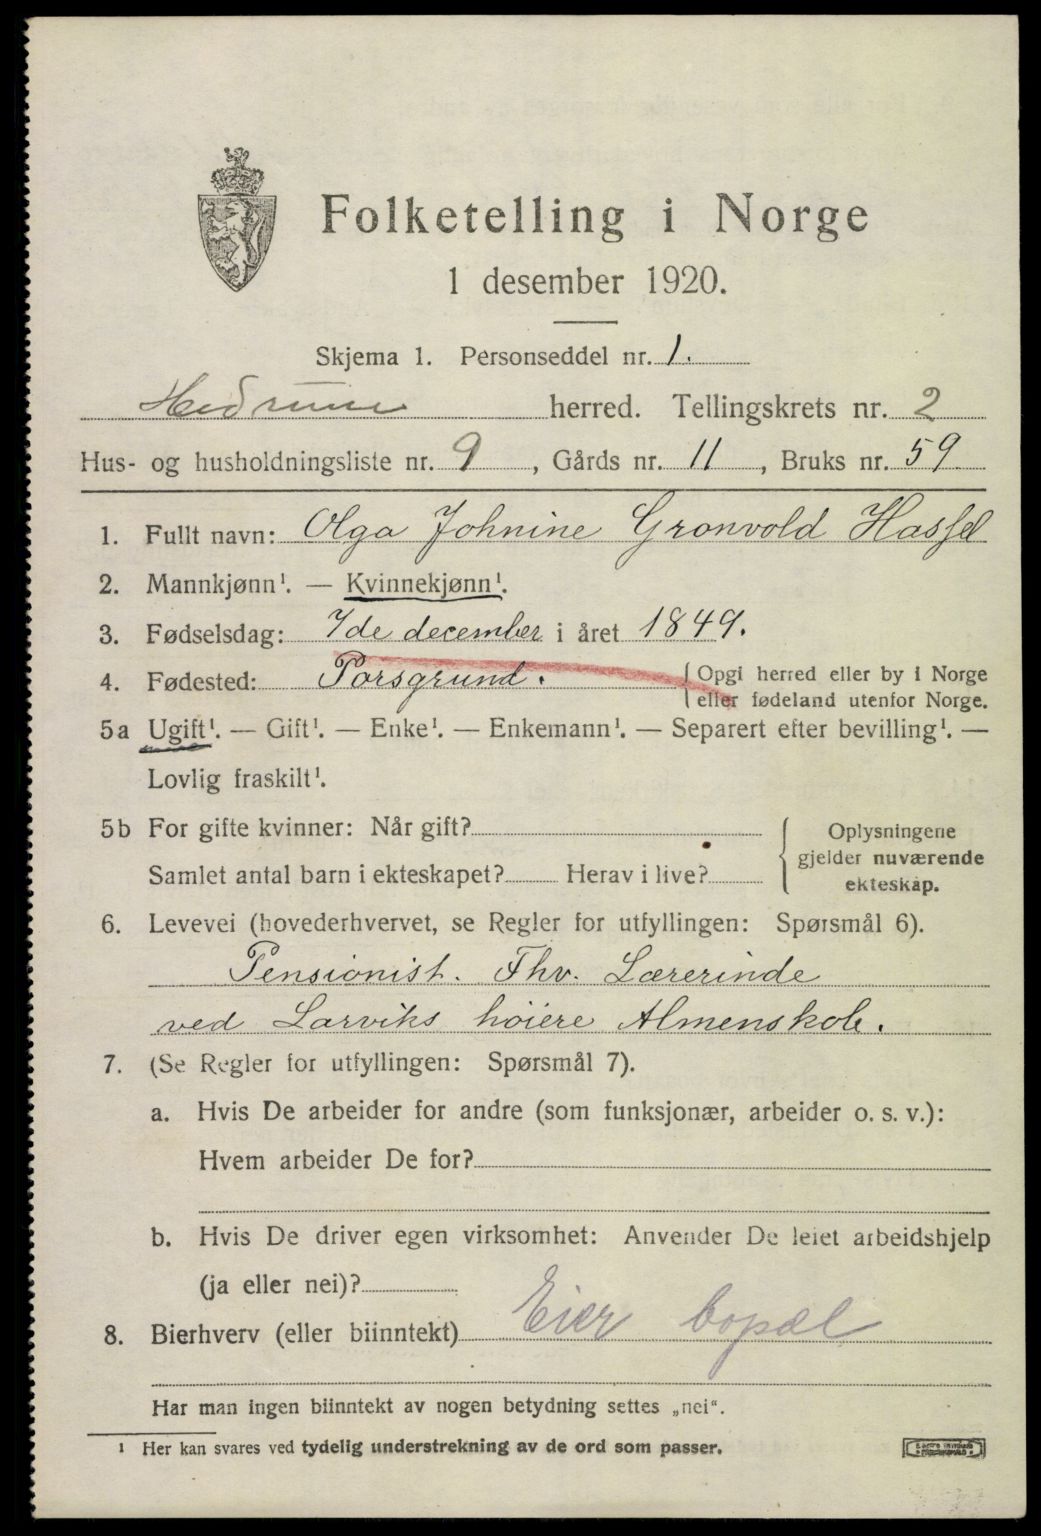 Folketelling i Norge
1 desember 1920.
Skjema 1. Personseddel nr. 1.
Hedrum herred. Tellingskrets nr. 2
Hus- og husholdningsliste nr. 9, Gårds nr. 11, Bruks nr. 59
1. Fullt navn: Olga Johnine Gronvold Hassel
2. Mannkjønn¹. — Kvinnekjønn¹.
3. Fødselsdag: 7de december i året 1849.
4. Fødested: Porsgrund. { Opgi herred eller by i Norge
eller fødeland utenfor Norge.
5a Ugift¹. — Gift¹. — Enke¹. — Enkemann¹. — Separert efter bevilling¹. —
Lovlig fraskilt¹.
5b For gifte kvinner: Når gift?
Samlet antal barn i ekteskapet? Herav i live?
Oplysningene
gjelder nuværende
ekteskap.
6. Levevei (hovederhvervet, se Regler for utfyllingen: Spørsmål 6).
Pensionist. Fhv. Lærerinde
ved Larviks høiere Almenskole.
7. (Se Regler for utfyllingen: Spørsmål 7).
a. Hvis De arbeider for andre (som funksjonær, arbeider o. s. v.):
Hvem arbeider De for?
b. Hvis De driver egen virksomhet: Anvender De leiet arbeidshjelp
(ja eller nei)?
8. Bierhverv (eller biinntekt) Eier bopæl
Har man ingen biinntekt av nogen betydning settes „nei“.
¹ Her kan svares ved tydelig understrekning av de ord som passer.